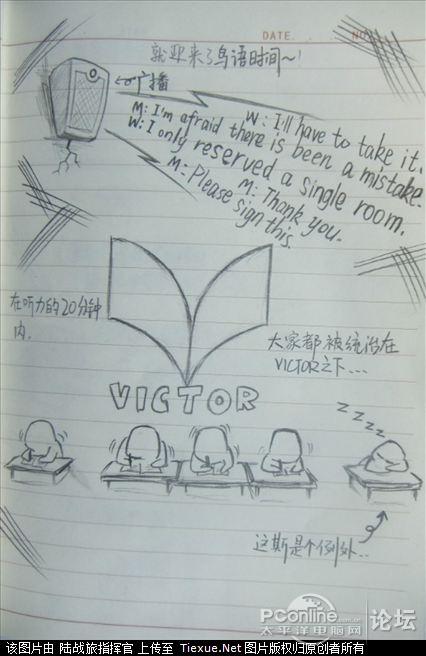 DATE. NO.
就迎来了鸟语时间~!
广播
W: I'll have to take it.
M: I'm afraid there is been a mistake.
W: I only reserved a single room.
M: Thank you.
M: Please sign this.
在听力的20分钟
内.
大家都被统治在
VICTOR之下...
VICTOR
zzzzz
这厮是个例外...
PConline.com.cn
太平洋电脑网 论坛
该图片由 陆战旅指挥官 上传至 Tiexue.Net 图片版权归原创者所有